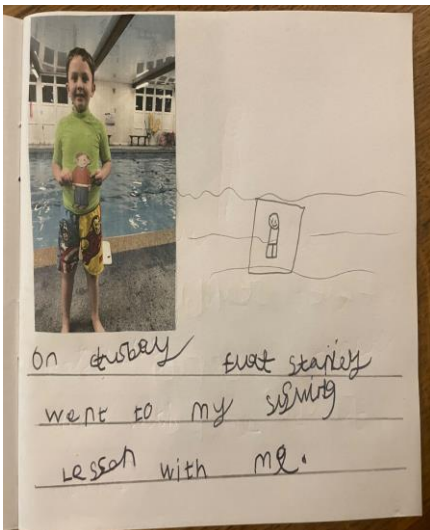 on dusbay flat stanley
went to my siming
Lesson with me.